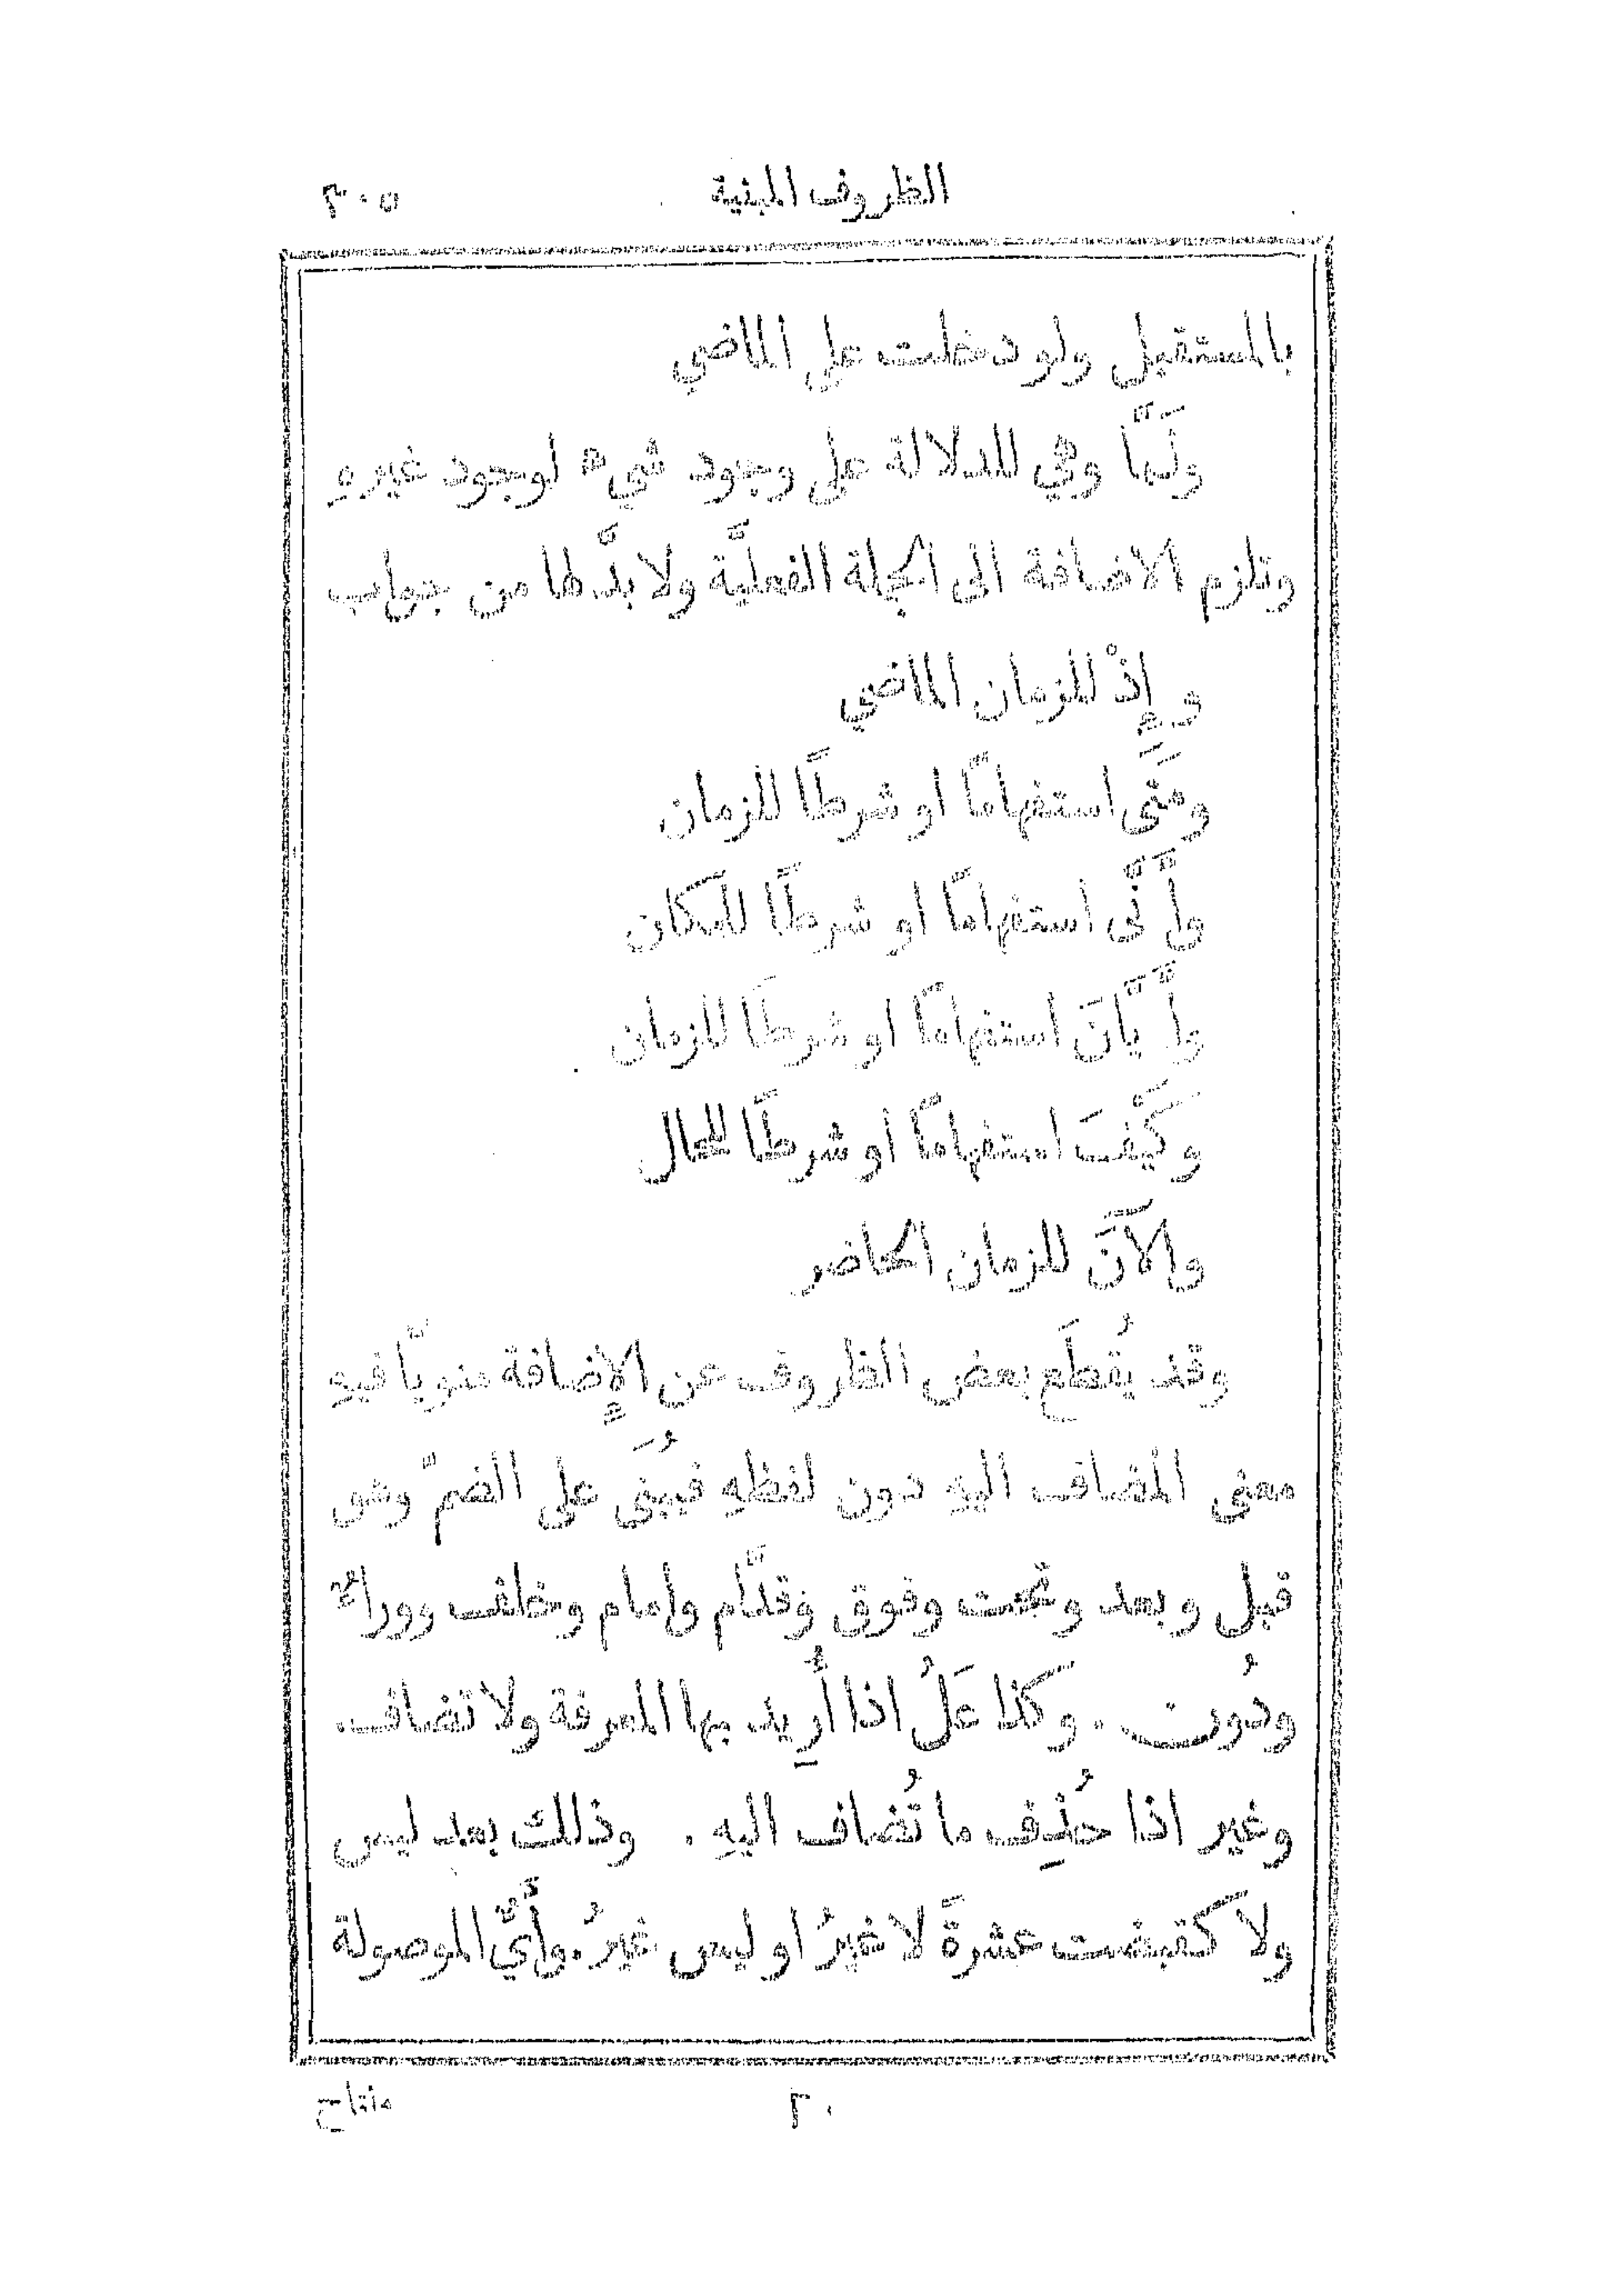 الظروف المبنية ٣٠٥
بالمستقبل ولو دخلت على الماضي
ولَمَّا وهي للدلالة على وجود شيء لوجود غيرهِ
وتلزم الاضافة الى الجملة الفعليَّة ولا بدَّ لها من جواب
وإِذْ للزمان الماضي
ومَتَى استفهامًا او شرطًا للزمان
وأَنَّى استفهامًا او شرطًا للمكان
وأَيَّانَ استفهامًا او شرطًا للزمان
وكَيْفَ استفهامًا او شرطًا للحال
والآنَ للزمان الحاضر
وقد يُقطَع بعض الظروف عن الإِضافة منويًّا فيهِ
معنى المضاف اليهِ دون لفظهِ فيُبنَى على الضمّ وهو
قبل وبعد وتحت وفوق وقدَّام وامام وخلف ووراءُ
ودُون. وكذا عَلُ اذا أُرِيد بها المعرفة ولا تضاف.
وغير اذا حُذِف ما تُضاف اليهِ. وذلك بعد ليس
ولا كقبضت عشرةً لا غيرُ او ليس غيرُ. وأَيُّ الموصولة
٢٠
مفتاح